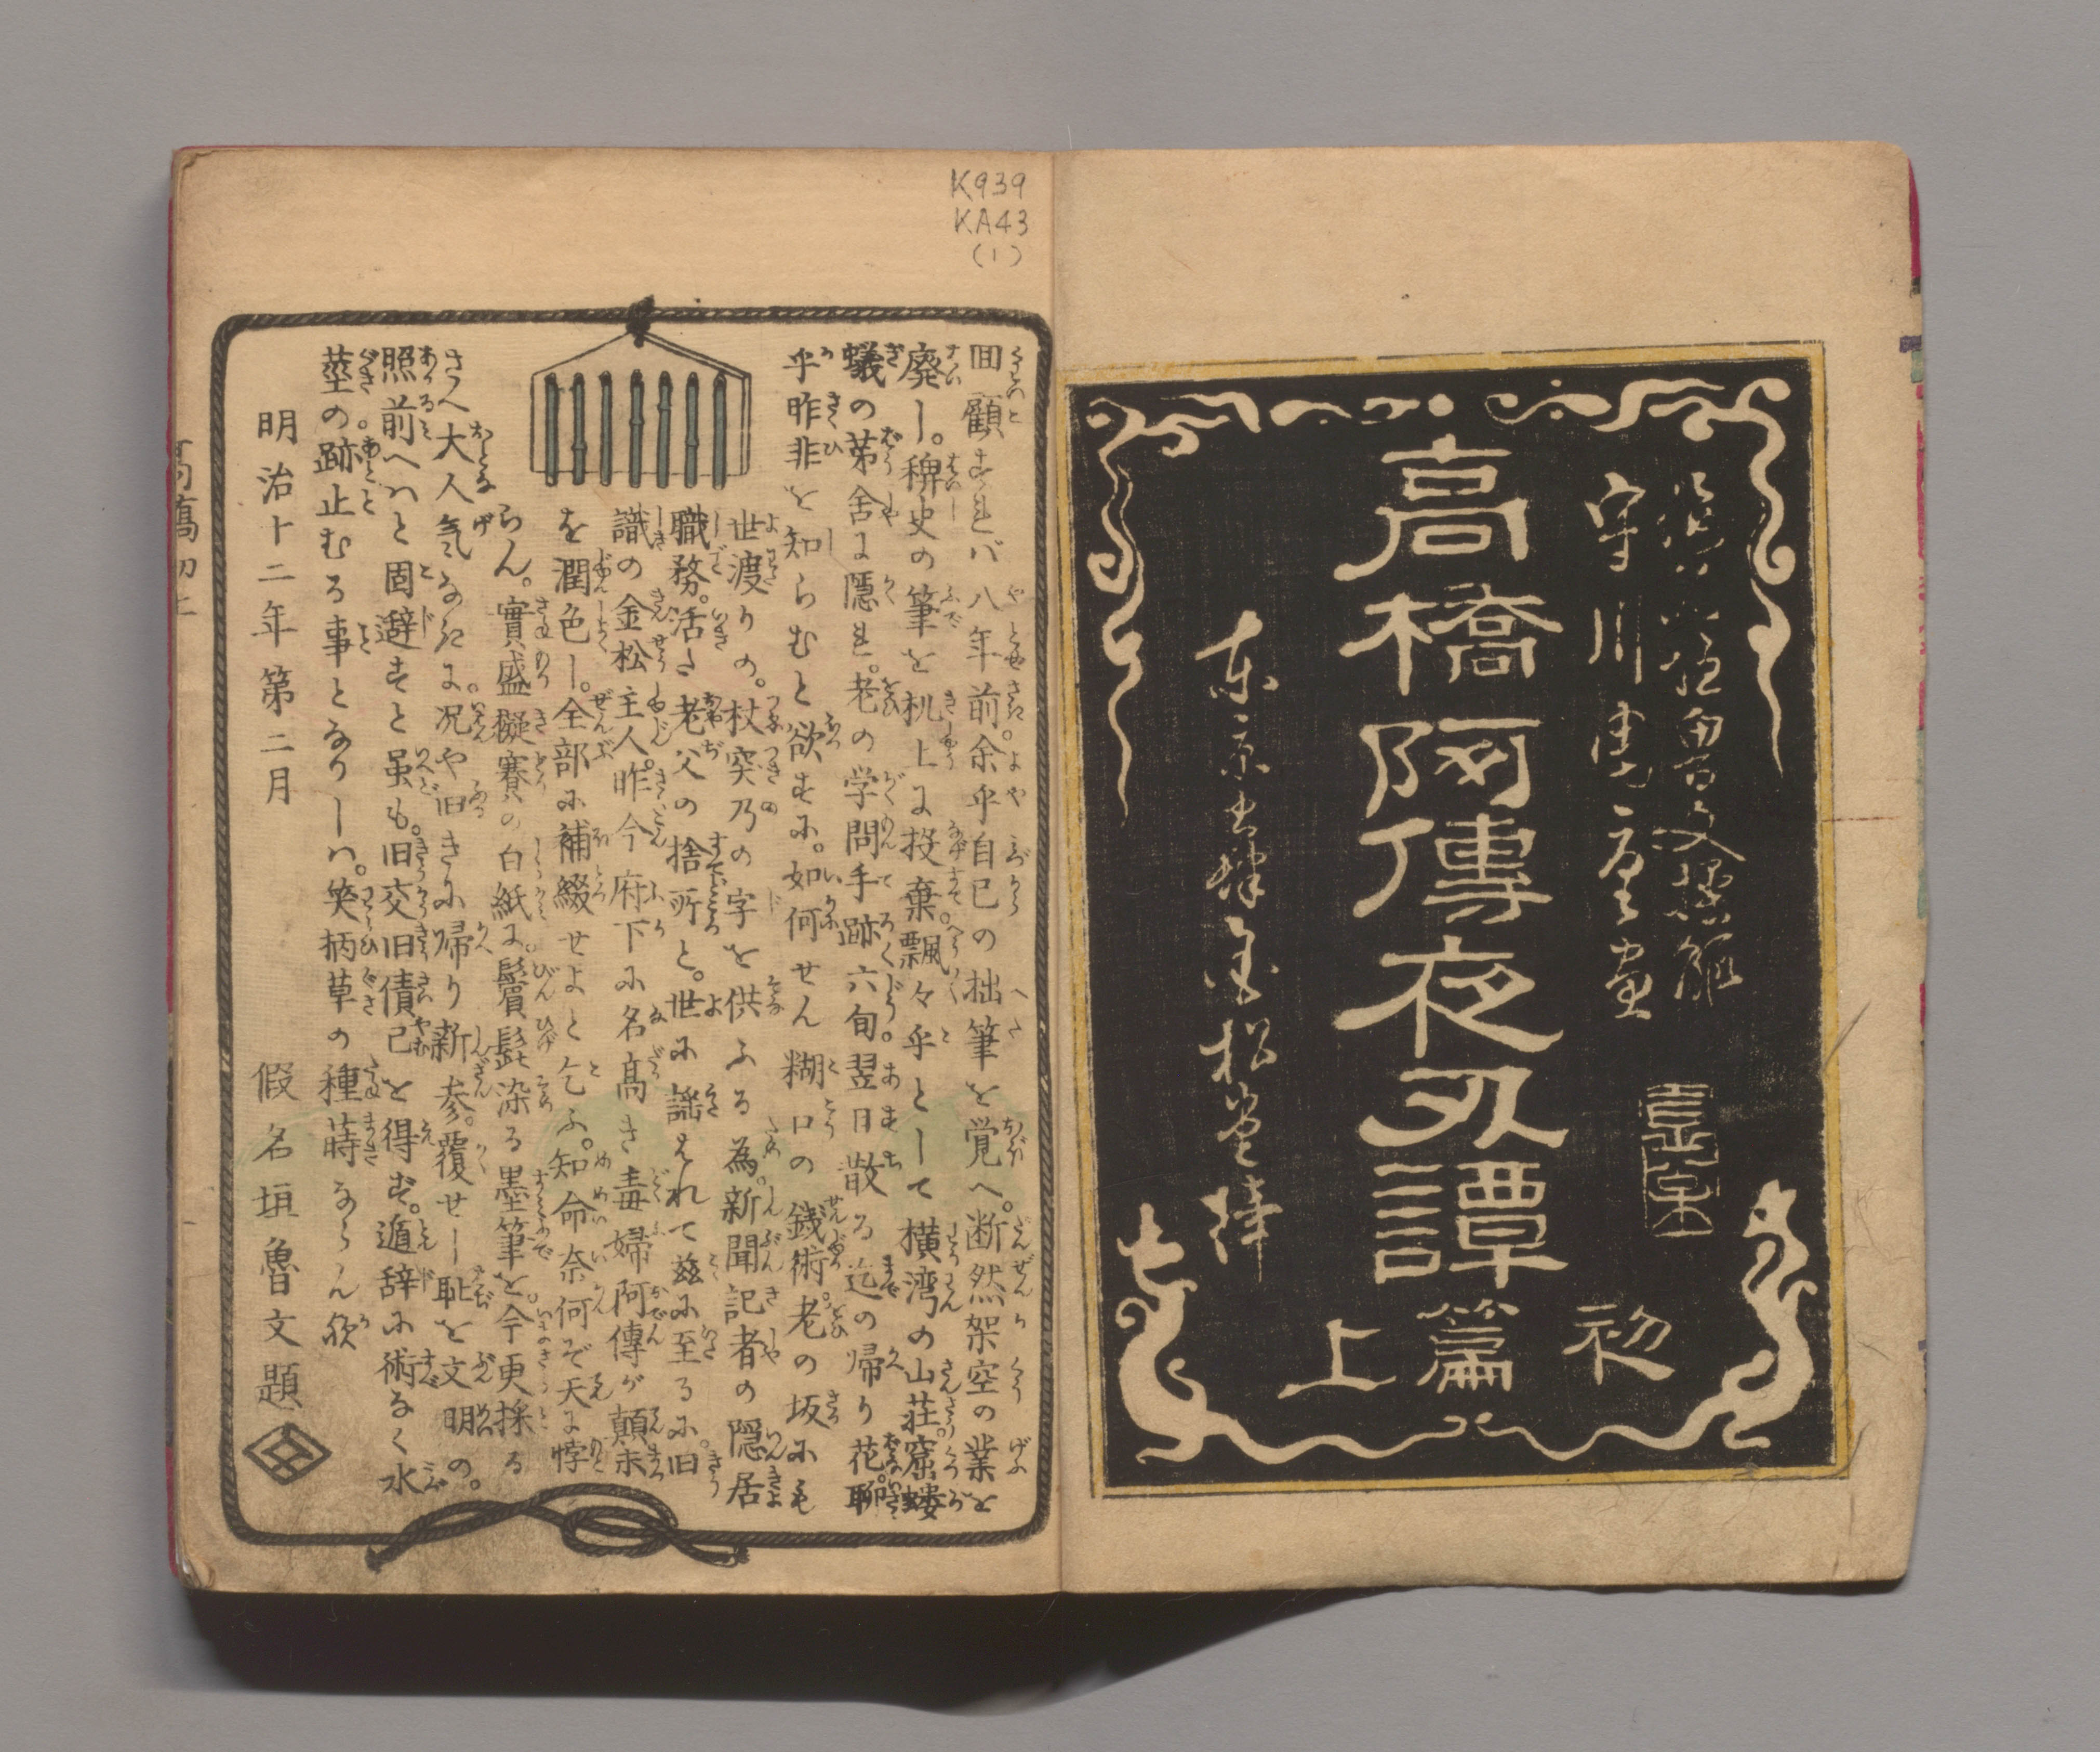 假名垣魯文操觚
守川周重畫
高橋阿傳夜刄譚
初
篇
上
東京書肆金松堂梓
K939
KA43
(1)
回顧すれバ八年前。余乎自己の拙筆を覚へ。断然架空の業を
廃し。稗史の筆を机上に投棄飄々乎として横湾の山荘。窟螻
蟻の茅舎に隠れ。老の学問手跡六旬翌日散る迄の帰り花。聊
乎昨非を知らむと欲するに。如何せん糊口の銭術。老の坂にも
世渡りの。杖突乃の字を供ふる為。新聞記者の隠居
職務。活た老父の捨所と。世に謡はれて茲に至るに。旧
識の金松主人。昨今府下に名高き毒婦阿傳が顛末
を潤色し。全部に補綴せよと乞ふ。知命奈何ぞ天に悖
らん。實盛擬賽の白紙に。鬢髭染る墨筆を。今更採る
さへ大人気なきに。况や旧きに帰り新参。覆せし耻を文明の。
照前へハと固辞すと虽も。旧交旧債已を得ず。遁辞に術なく水
莖の跡止むる事となりしハ。笑柄草の種蒔ならん欤
明治十二年第二月
假名垣魯文題
高橋初上